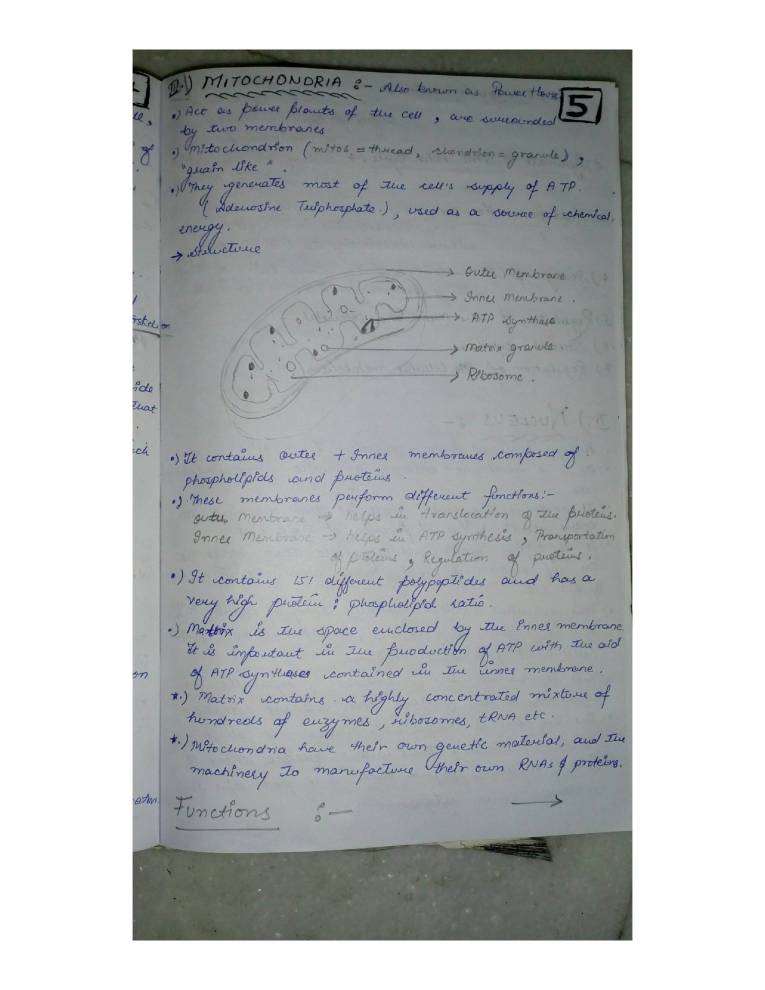 III.) MITOCHONDRIA :- Also known as Power House
5
•) Act as power plants of the cell, are surrounded
by two membranes
•) Mitochondrion (mitos = thread, chondrion = granule),
"grain like".
•) They generates most of the cell's supply of ATP.
(Adenosine Triphosphate.), used as a source of chemical
energy.
→ structure
Outer Membrane
Inner Membrane.
ATP synthase
Matrix granule
Ribosome.
•) It contains outer + Inner membranes composed of
phospholipids and proteins.
•) These membranes perform different functions:-
Outer Membrane → helps in translocation of the proteins.
Inner Membrane → helps in ATP synthesis, Transportation
of proteins, Regulation of proteins.
•) It contains 151 different polypeptides and has a
very high protein : phospholipid ratio.
•) Matrix is the space enclosed by the Inner membrane
It is important in the production of ATP with the aid
of ATP synthases contained in the inner membrane.
*.) Matrix contains a highly concentrated mixture of
hundreds of enzymes, ribosomes, tRNA etc.
*.) Mitochondria have their own genetic material, and the
machinery to manufacture their own RNAs & proteins.
Functions :- →